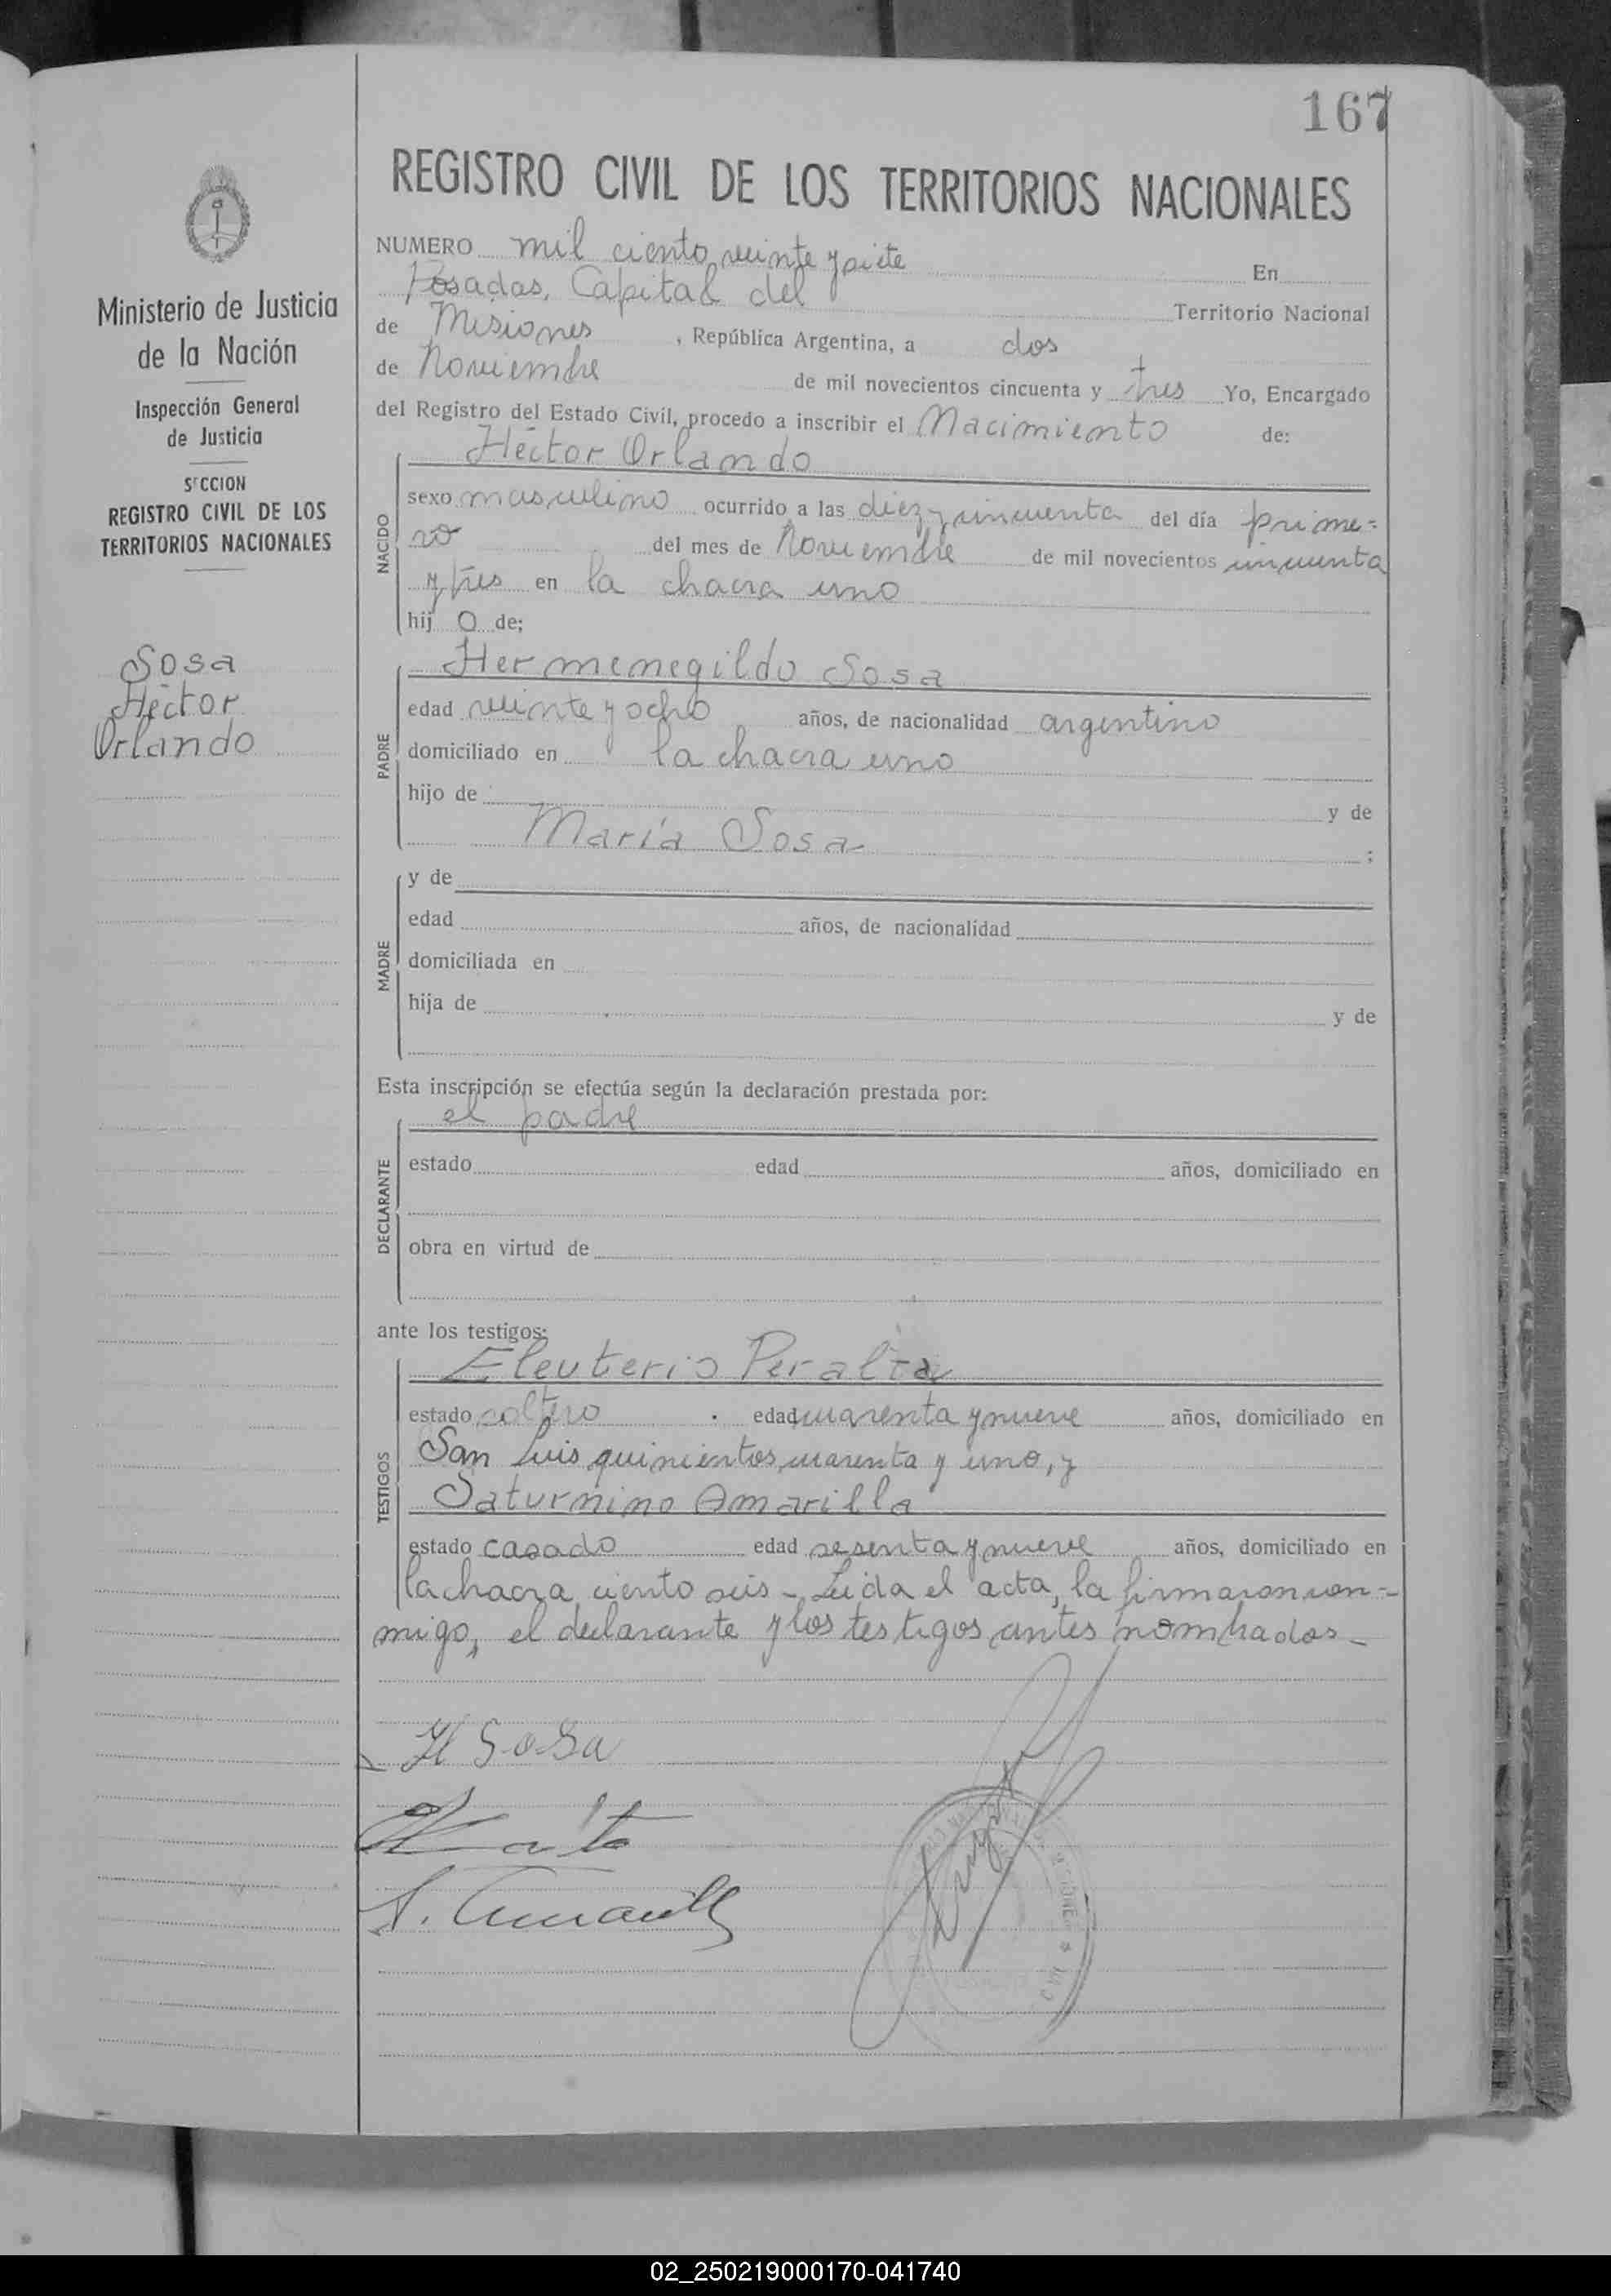 167
REGISTRO CIVIL DE LOS TERRITORIOS NACIONALES
Ministerio de Justicia
de la Nación
Inspección General
de Justicia
SECCION
REGISTRO CIVIL DE LOS
TERRITORIOS NACIONALES
Sosa
Héctor
Orlando
NUMERO mil ciento veinte y siete En
Posadas, Capital del Territorio Nacional
de Misiones, República Argentina, a dos
de Noviembre de mil novecientos cincuenta y tres Yo, Encargado
del Registro del Estado Civil, procedo a inscribir el Nacimiento de:
Héctor Orlando
NACIDO
sexo masculino ocurrido a las diez y cincuenta del día prime=
ro del mes de Noviembre de mil novecientos cincuenta
y tres en la chacra uno
hij o de;
Hermenegildo Sosa
PADRE
edad veinte y ocho años, de nacionalidad argentino
domiciliado en la chacra uno
hijo de y de
María Sosa ;
MADRE
y de
edad años, de nacionalidad
domiciliada en
hija de y de
Esta inscripción se efectúa según la declaración prestada por:
el padre
DECLARANTE
estado edad años, domiciliado en
obra en virtud de
ante los testigos:
Eleuterio Peralta
TESTIGOS
estado soltero . edad cuarenta y nueve años, domiciliado en
San Luis quinientos cuarenta y uno, y
Saturnino Amarilla
estado casado edad sesenta y nueve años, domiciliado en
la chacra ciento seis - Leida el acta, la firmaron con=
migo, el declarante y los testigos antes nombrados -
H Sosa
S. Amarilla
02_250219000170-041740